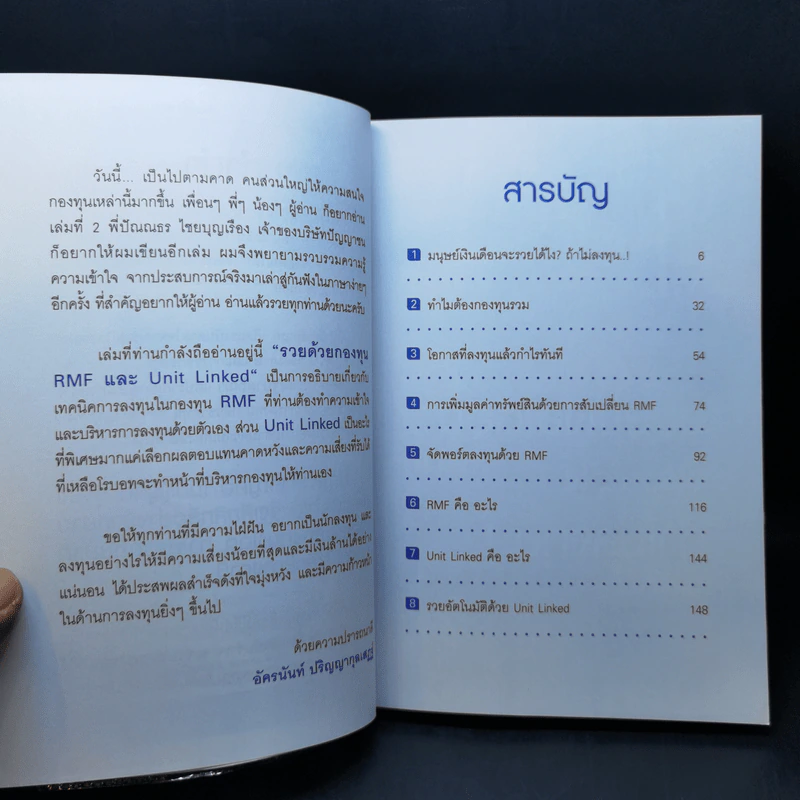 วันนี้... เป็นไปตามคาด คนส่วนใหญ่ให้ความสนใจ
กองทุนเหล่านี้มากขึ้น เพื่อนๆ พี่ๆ น้องๆ ผู้อ่าน ก็อยากอ่าน
เล่มที่ 2 พี่ปัณณธร ไชยบุญเรือง เจ้าของบริษัทปัญญาชน
ก็อยากให้ผมเขียนอีกเล่ม ผมจึงพยายามรวบรวมความรู้
ความเข้าใจ จากประสบการณ์จริงมาเล่าสู่กันฟังในภาษาง่ายๆ
อีกครั้ง ที่สำคัญอยากให้ผู้อ่าน อ่านแล้วรวยทุกท่านด้วยนะครับ
เล่มที่ท่านกำลังถืออ่านอยู่นี้ "รวยด้วยกองทุน
RMF และ Unit Linked" เป็นการอธิบายเกี่ยวกับ
เทคนิคการลงทุนในกองทุน RMF ที่ท่านต้องทำความเข้าใจ
และบริหารการลงทุนด้วยตัวเอง ส่วน Unit Linked เป็นอะไร
ที่พิเศษมากแค่เลือกผลตอบแทนคาดหวังและความเสี่ยงที่รับได้
ที่เหลือโรบอทจะทำหน้าที่บริหารกองทุนให้ท่านเอง
ขอให้ทุกท่านที่มีความใฝ่ฝัน อยากเป็นนักลงทุน และ
ลงทุนอย่างไรให้มีความเสี่ยงน้อยที่สุดและมีเงินล้านได้อย่าง
แน่นอน ได้ประสพผลสำเร็จดังที่ใจมุ่งหวัง และมีความก้าวหน้า
ในด้านการลงทุนยิ่งๆ ขึ้นไป
ด้วยความปรารถนาดี
อัครนันท์ ปริญญากุลเสฏฐ์
สารบัญ
1 มนุษย์เงินเดือนจะรวยได้ไง? ถ้าไม่ลงทุน..! 6
2 ทำไมต้องกองทุนรวม 32
3 โอกาสที่ลงทุนแล้วกำไรทันที 54
4 การเพิ่มมูลค่าทรัพย์สินด้วยการสับเปลี่ยน RMF 74
5 จัดพอร์ตลงทุนด้วย RMF 92
6 RMF คือ อะไร 116
7 Unit Linked คือ อะไร 144
8 รวยอัตโนมัติด้วย Unit Linked 148